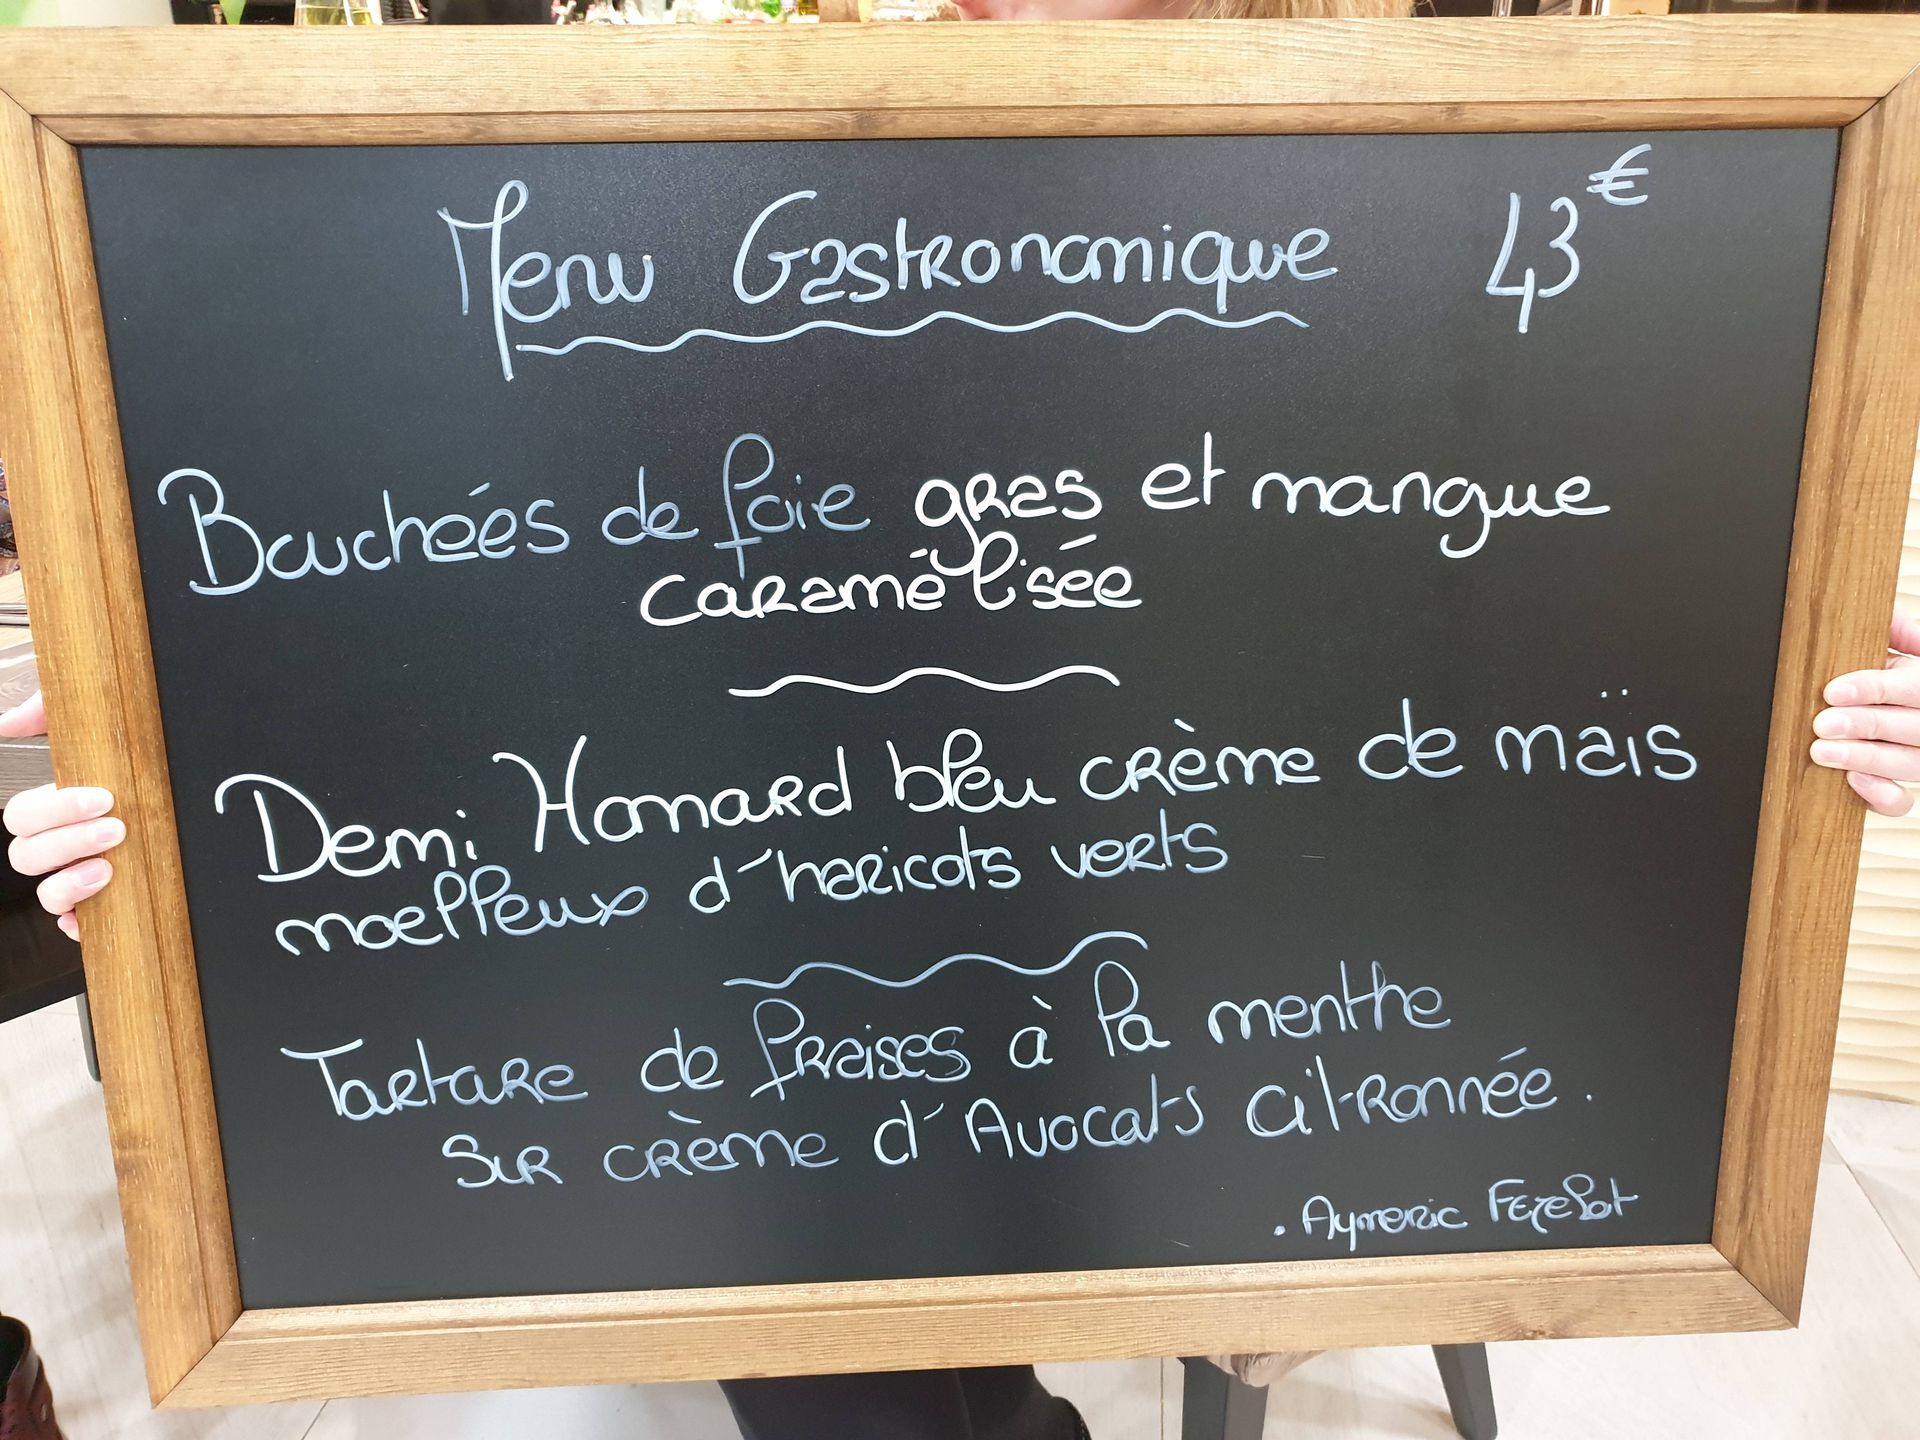 Menu Gastronomique 43€
Bouchées de foie gras et mangue
caramélisée
Demi Homard bleu crème de maïs
moelleux d'haricots verts
Tartare de fraises à la menthe
Sur crème d'Avocats citronnée.
. Aymeric